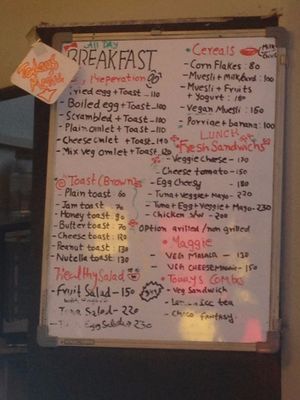 Today's
All DAY
BREAKFAST
Preperation
Fried egg + Toast - 110
Boiled egg + Toast - 100
Scrambled + Toast - 110
Plain omlet + Toast - 110
Cheese omlet + Toast - 140
Mix veg omlet + Toast - 120
Toast (Brown)
Plain toast - 60
Jam toast - 70
Honey toast 90
Butter toast 70
Cheese toast 120
Peanut toast 130
Nutella toast 130
Healthy Salad
Fruit Salad - 150
Tuna Salad - 220
Egg Salad - 230
Cereals
Corn Flakes : 80
Muesli + Milk/Curd : 100
Muesli + Fruits
+ Yogurt : 150
Vegan Muesli : 150
Porrige + banana : 100
LUNCH
Fresh Sandwichs
Veggie Cheese - 170
Cheese tomato - 150
Egg Cheesy - 180
Tuna + Veggie + Mayo - 220
Tuna + Egg + Veggie + Mayo - 230
Chicken S/W - 200
Option grilled / non grilled
Maggie
Veg MASALA - 130
Veg CHEESE - 150
Todays Combo
Veg Sandwich
Ice tea
Choco Fantasy